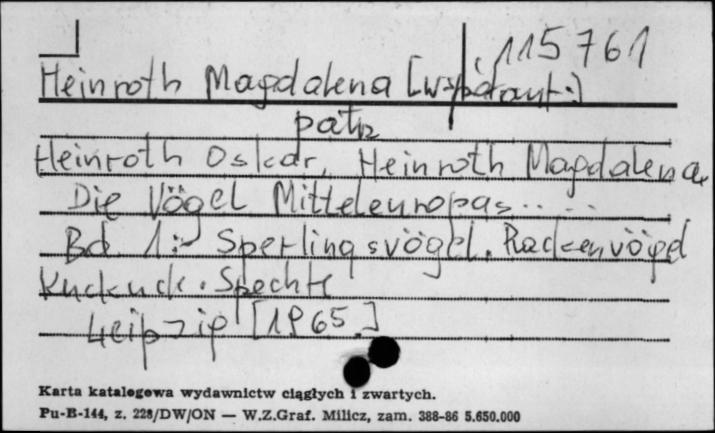 115761
Heinroth Magdalena [współaut.]
patrz
Heinroth Oskar, Heinroth Magdalena
Die Vögel Mitteleuropas...
Bd. 1: Sperlingsvögel. Rackenvögel
Kuckuck. Spechte
Leipzig [1965.]
Karta katalogowa wydawnictw ciągłych i zwartych.
Pu-B-144, z. 228/DW/ON — W.Z.Graf. Milicz, zam. 388-86 5.650.000